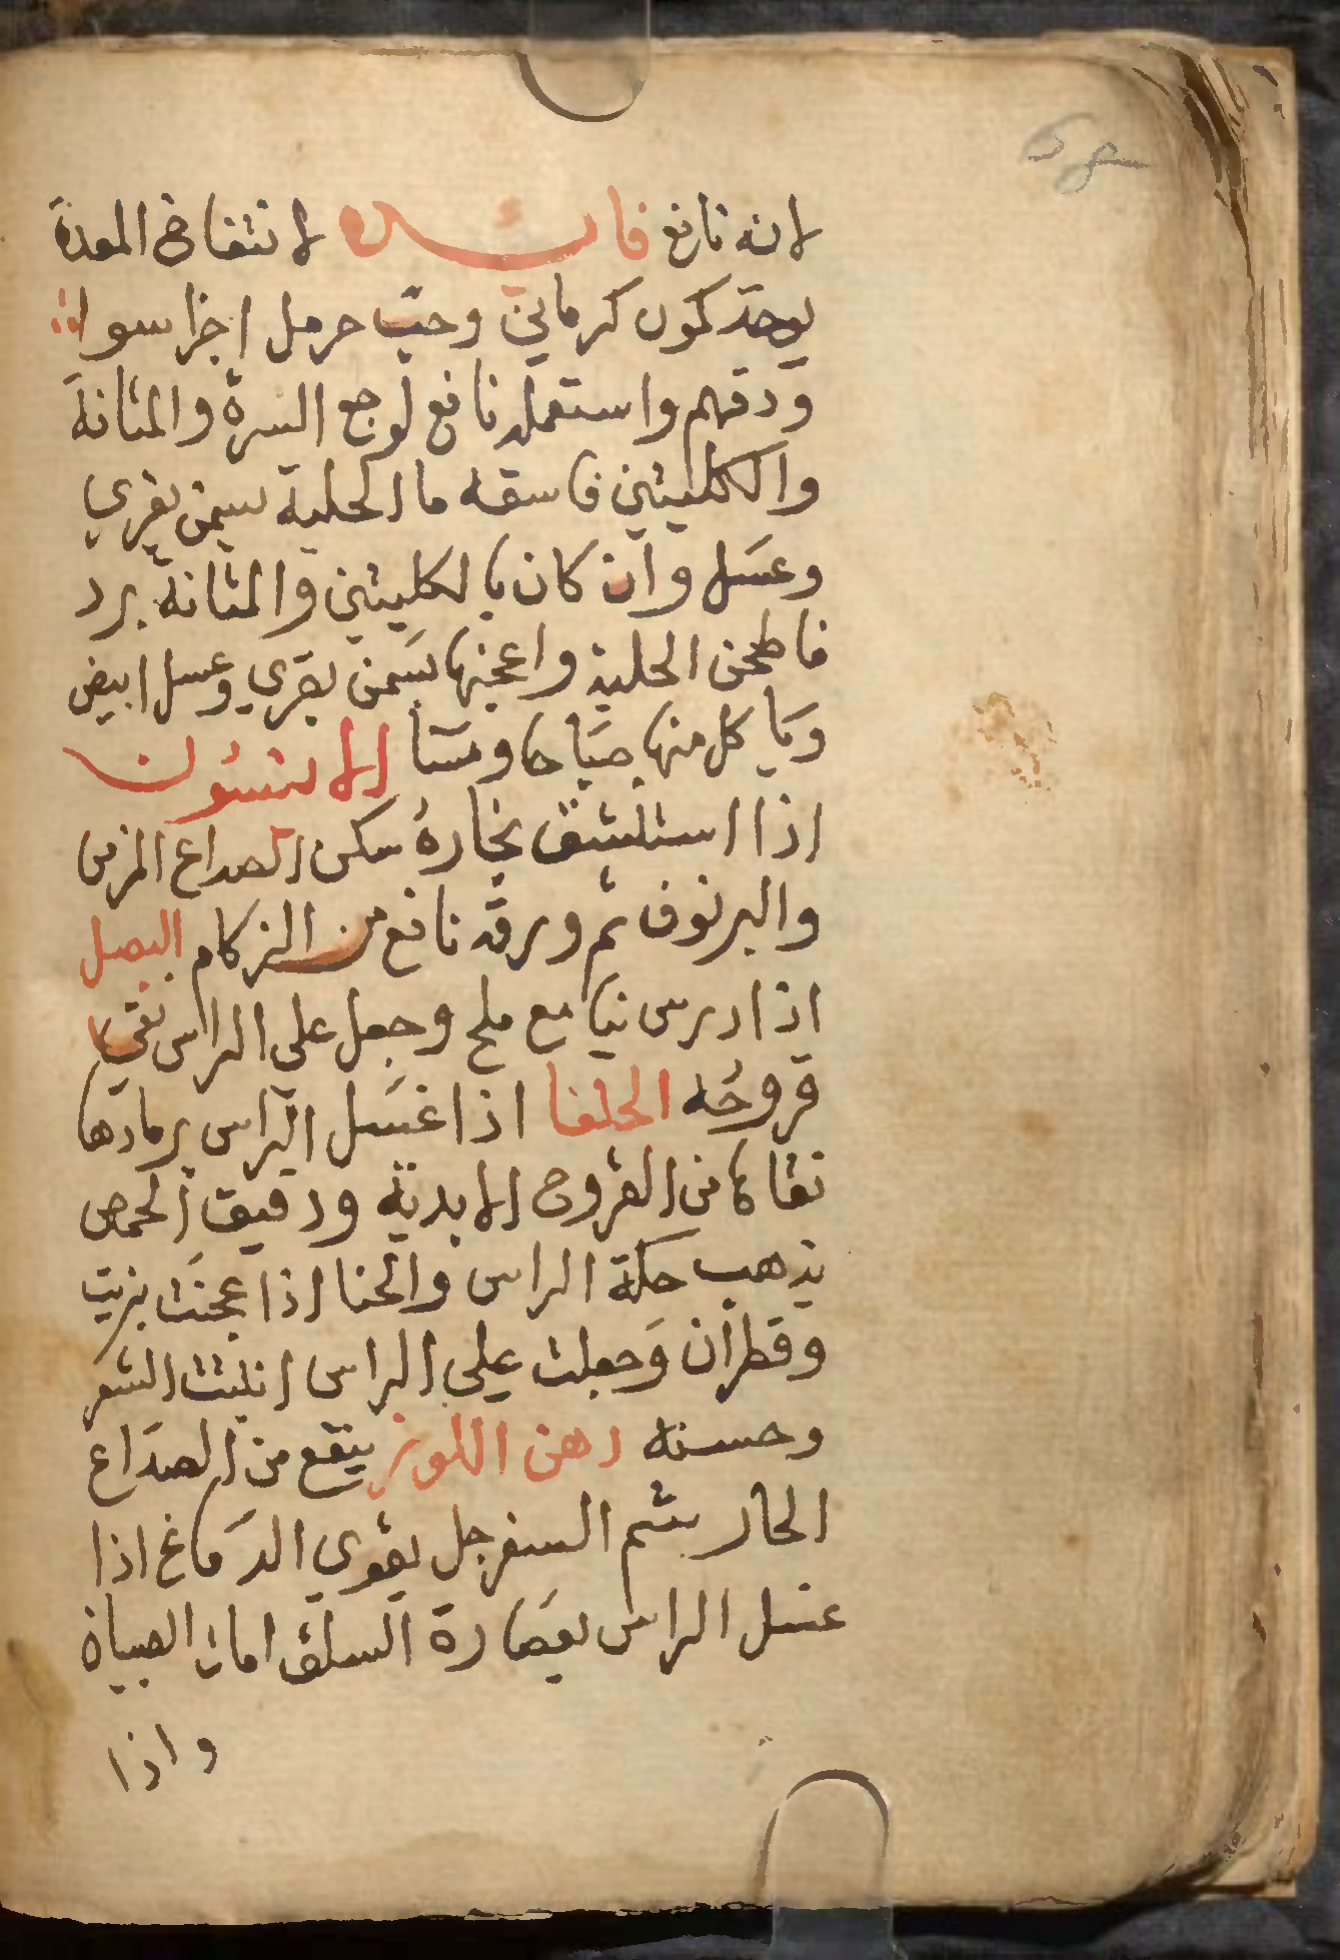 لانه نافع فايده لانتفاخ المعدة
يوخذ كمون كرماني وحب حرمل اجزا سوا
ودقهم واستعمله نافع لوجع السرة والمثانة
والكليتين فاسقه ما الحلبة بسمن بقري
وعسل وان كان بالكليتين والمثانة برد
فاطحن الحلبة واعجنها بسمن بقري وعسل ابيض
وياكل منها صباحا ومسا الانيسون
اذا استنشق بخاره سكن الصداع المزمن
والبرنوف شم ورقه نافع من الزكام البصل
اذا درس نيا مع ملح وجعل على الراس نقى
قروحه الحلفا اذا غسل الراس برمادها
نقاها من القروح الابدية ودقيق الحمص
يذهب حكة الراس والحنا اذا عجنت بزيت
وقطران وجعلت على الراس انبتت الشعر
وحسنه دهن اللوز ينفع من الصداع
الحار بشم السفرجل يقوي الدماغ اذا
غسل الراس بعصارة السلق امات الصيبان
واذا